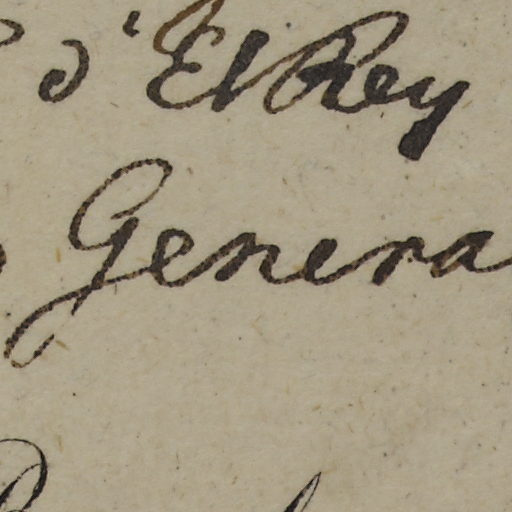 d'ElRey
Genera